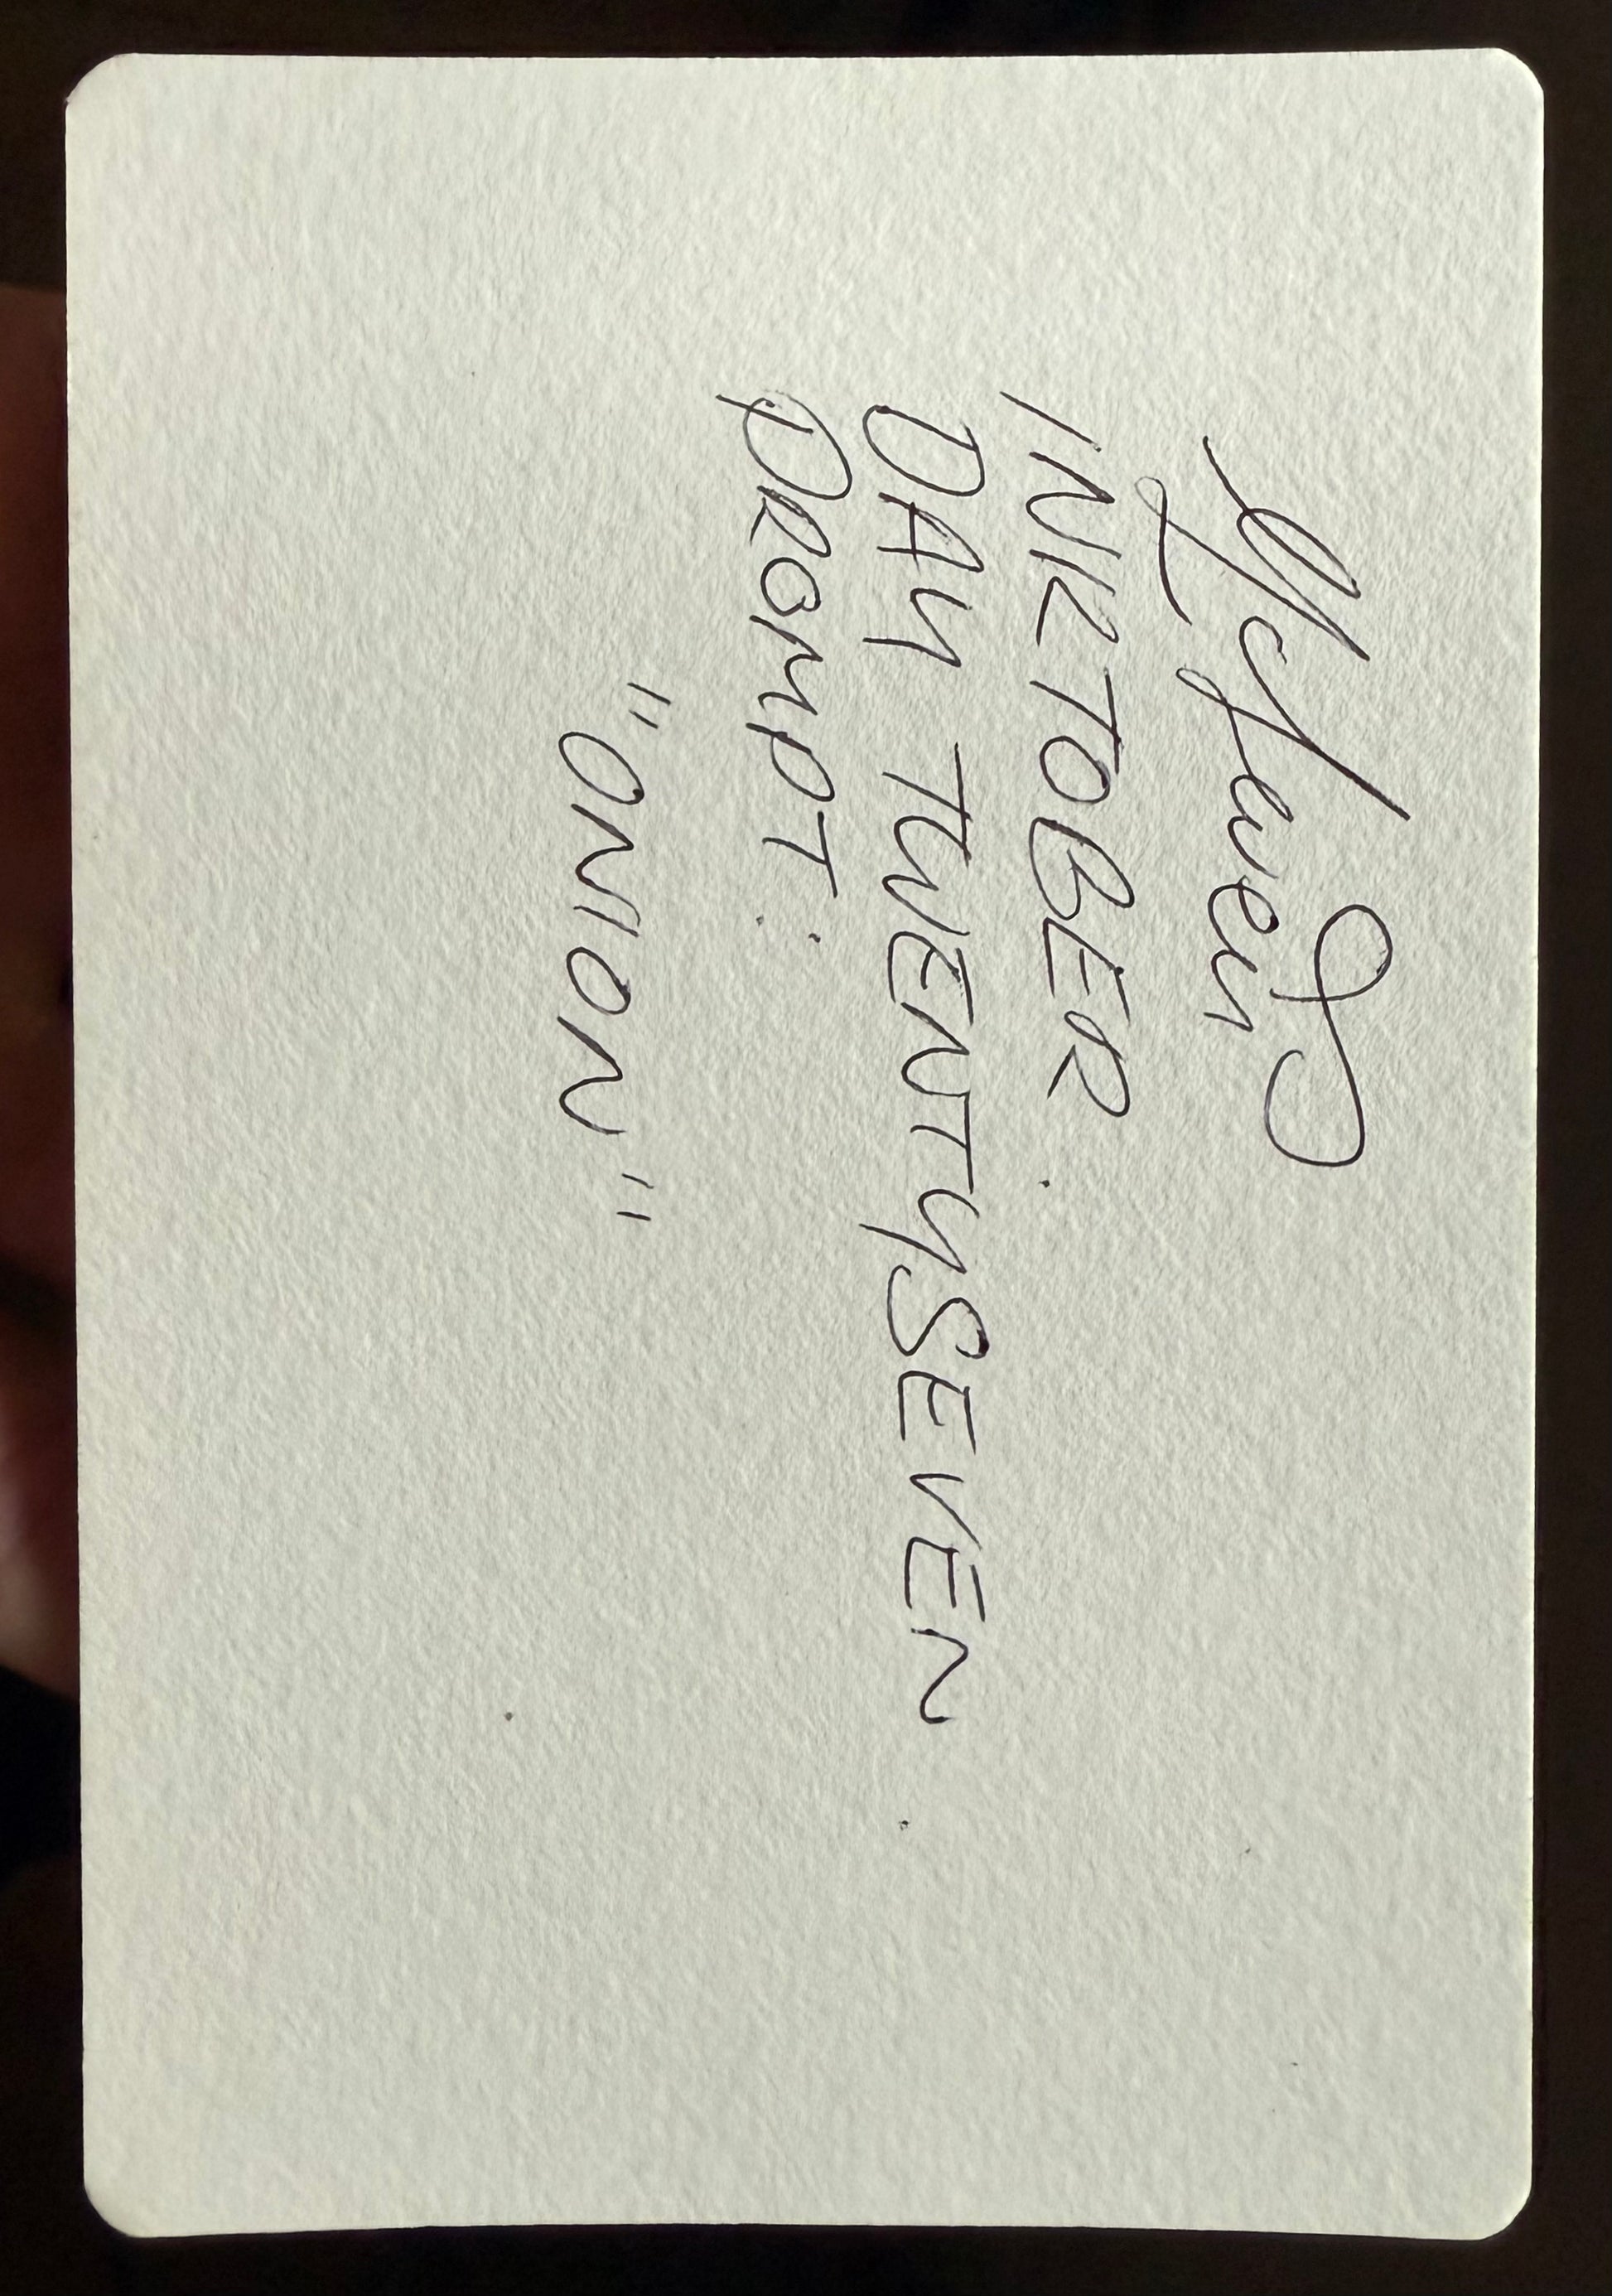 INKTOBER
DAY TWENTYSEVEN
PROMPT:
"ONION"